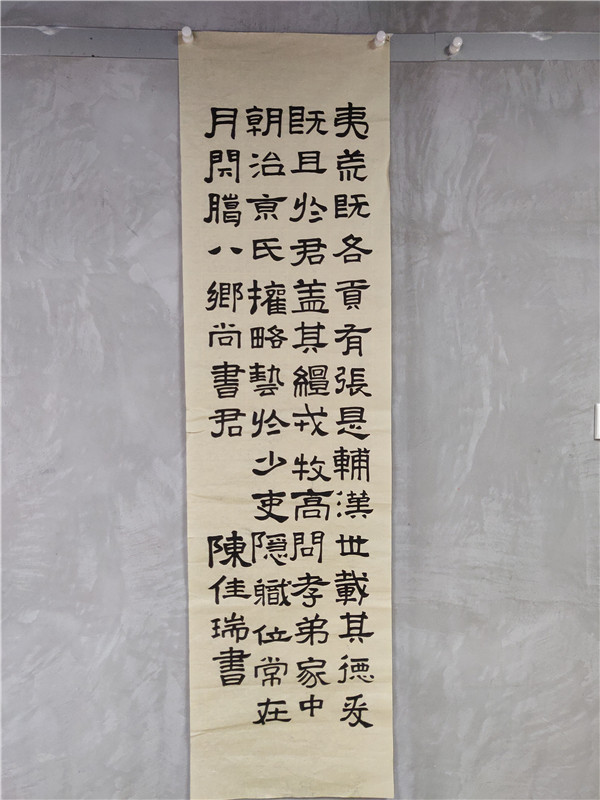 夷荒既各貢有張是輔漢世載其德爰
既且於君盖其繵戎牧高問孝弟家中
朝治京氏攉略藝於少吏隱職位常在
月閇臈八鄉尚書君
陳佳瑞書